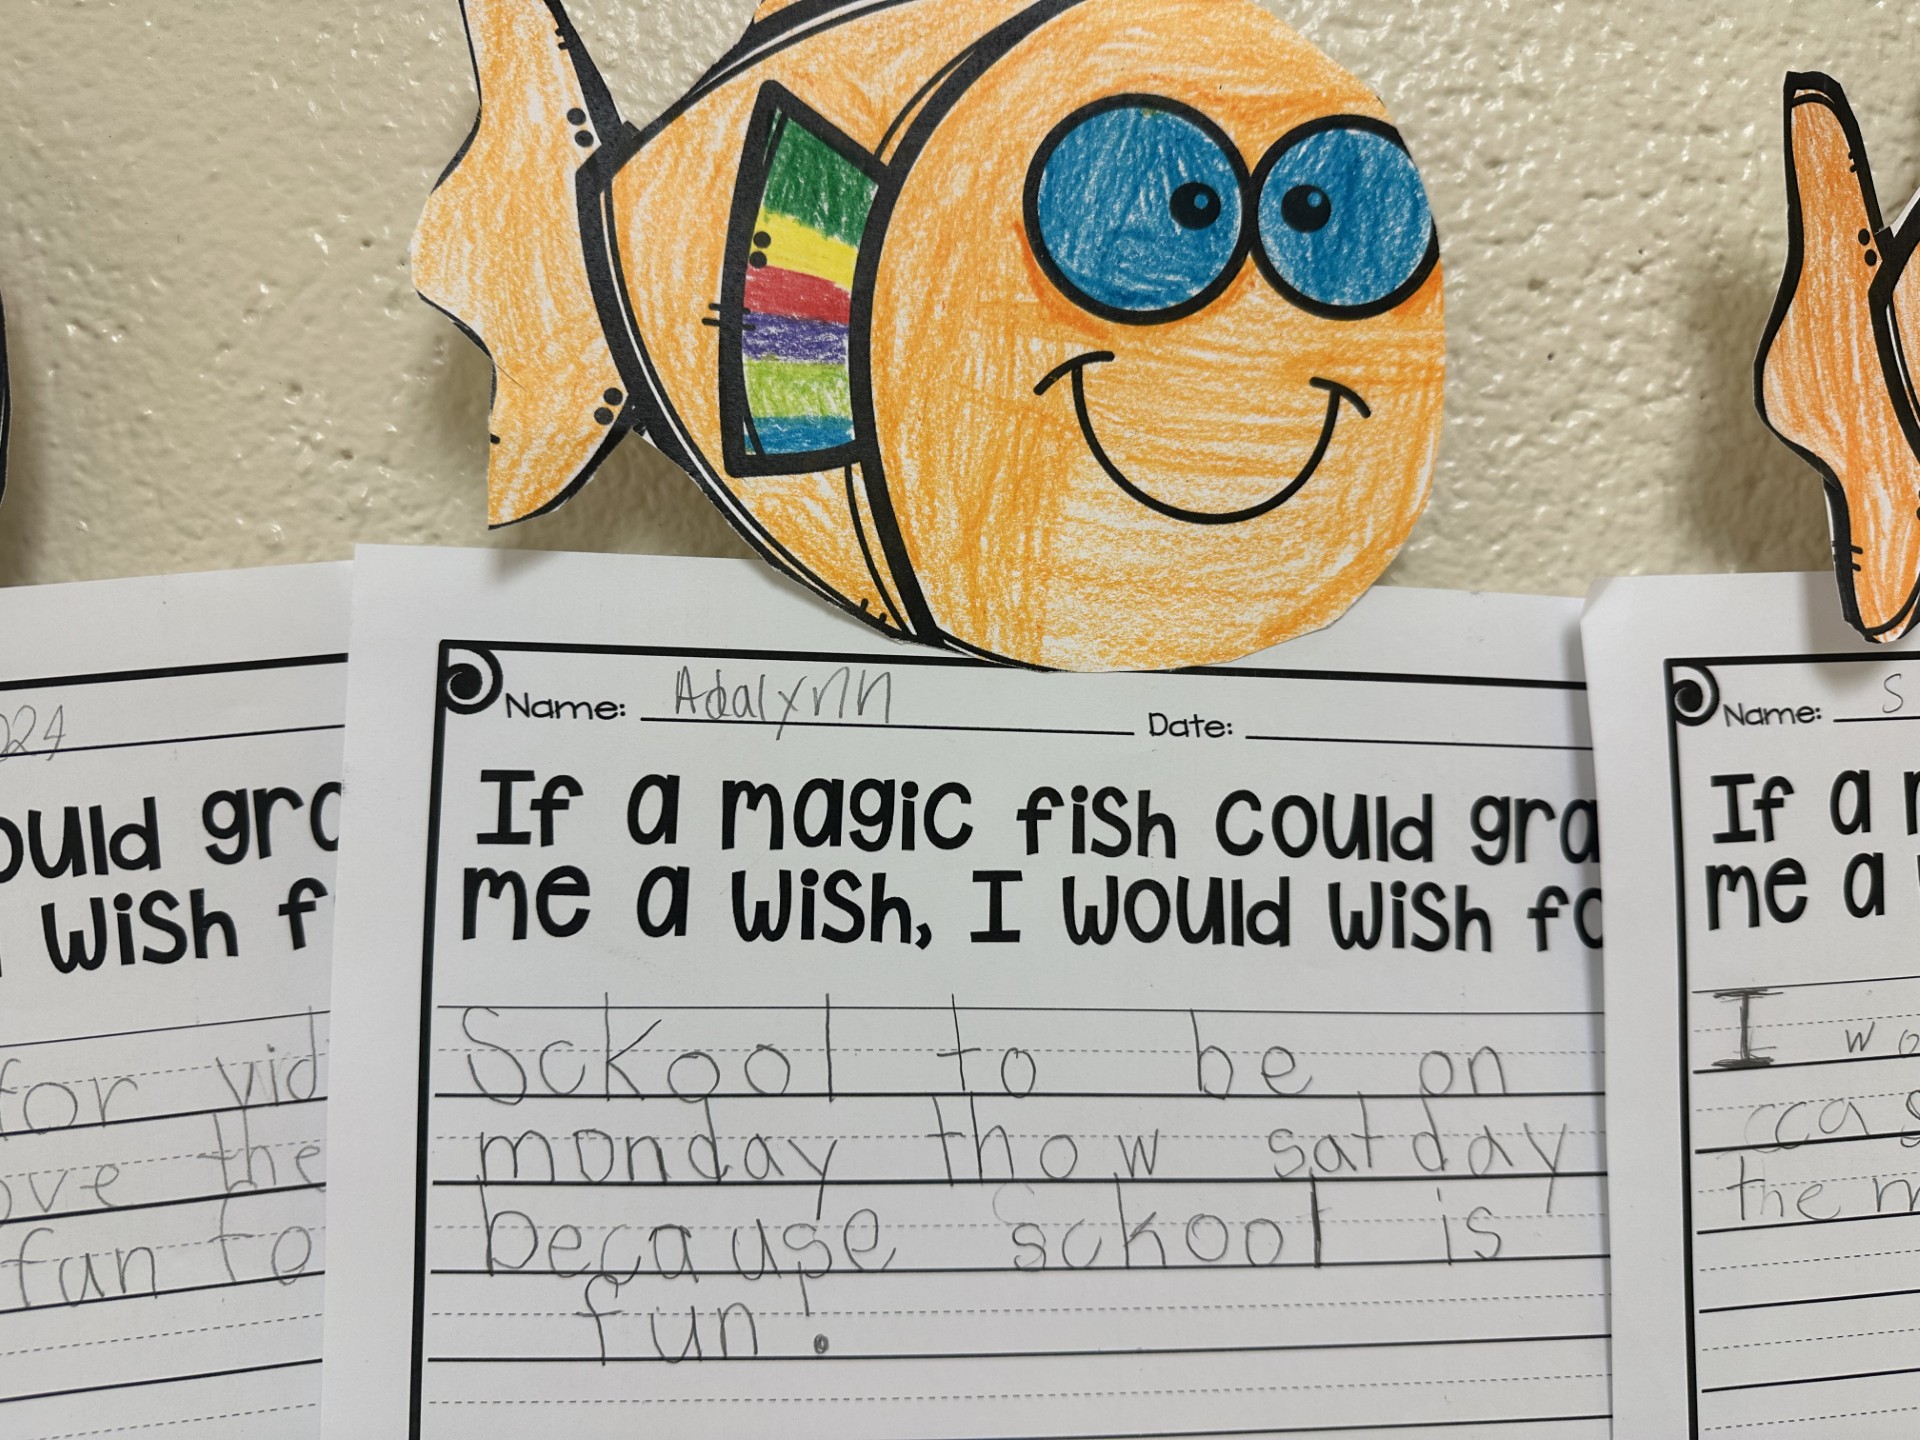 024
ould gra
wish f
for vid
ove the
fun to
Name: Adalynn Date:
If a magic fish could gra
me a wish, I would wish fo
Sckool to be on
monday thow satday
because sckool is
fun!
Name: S
If a m
me a
I wo
cca s
the m